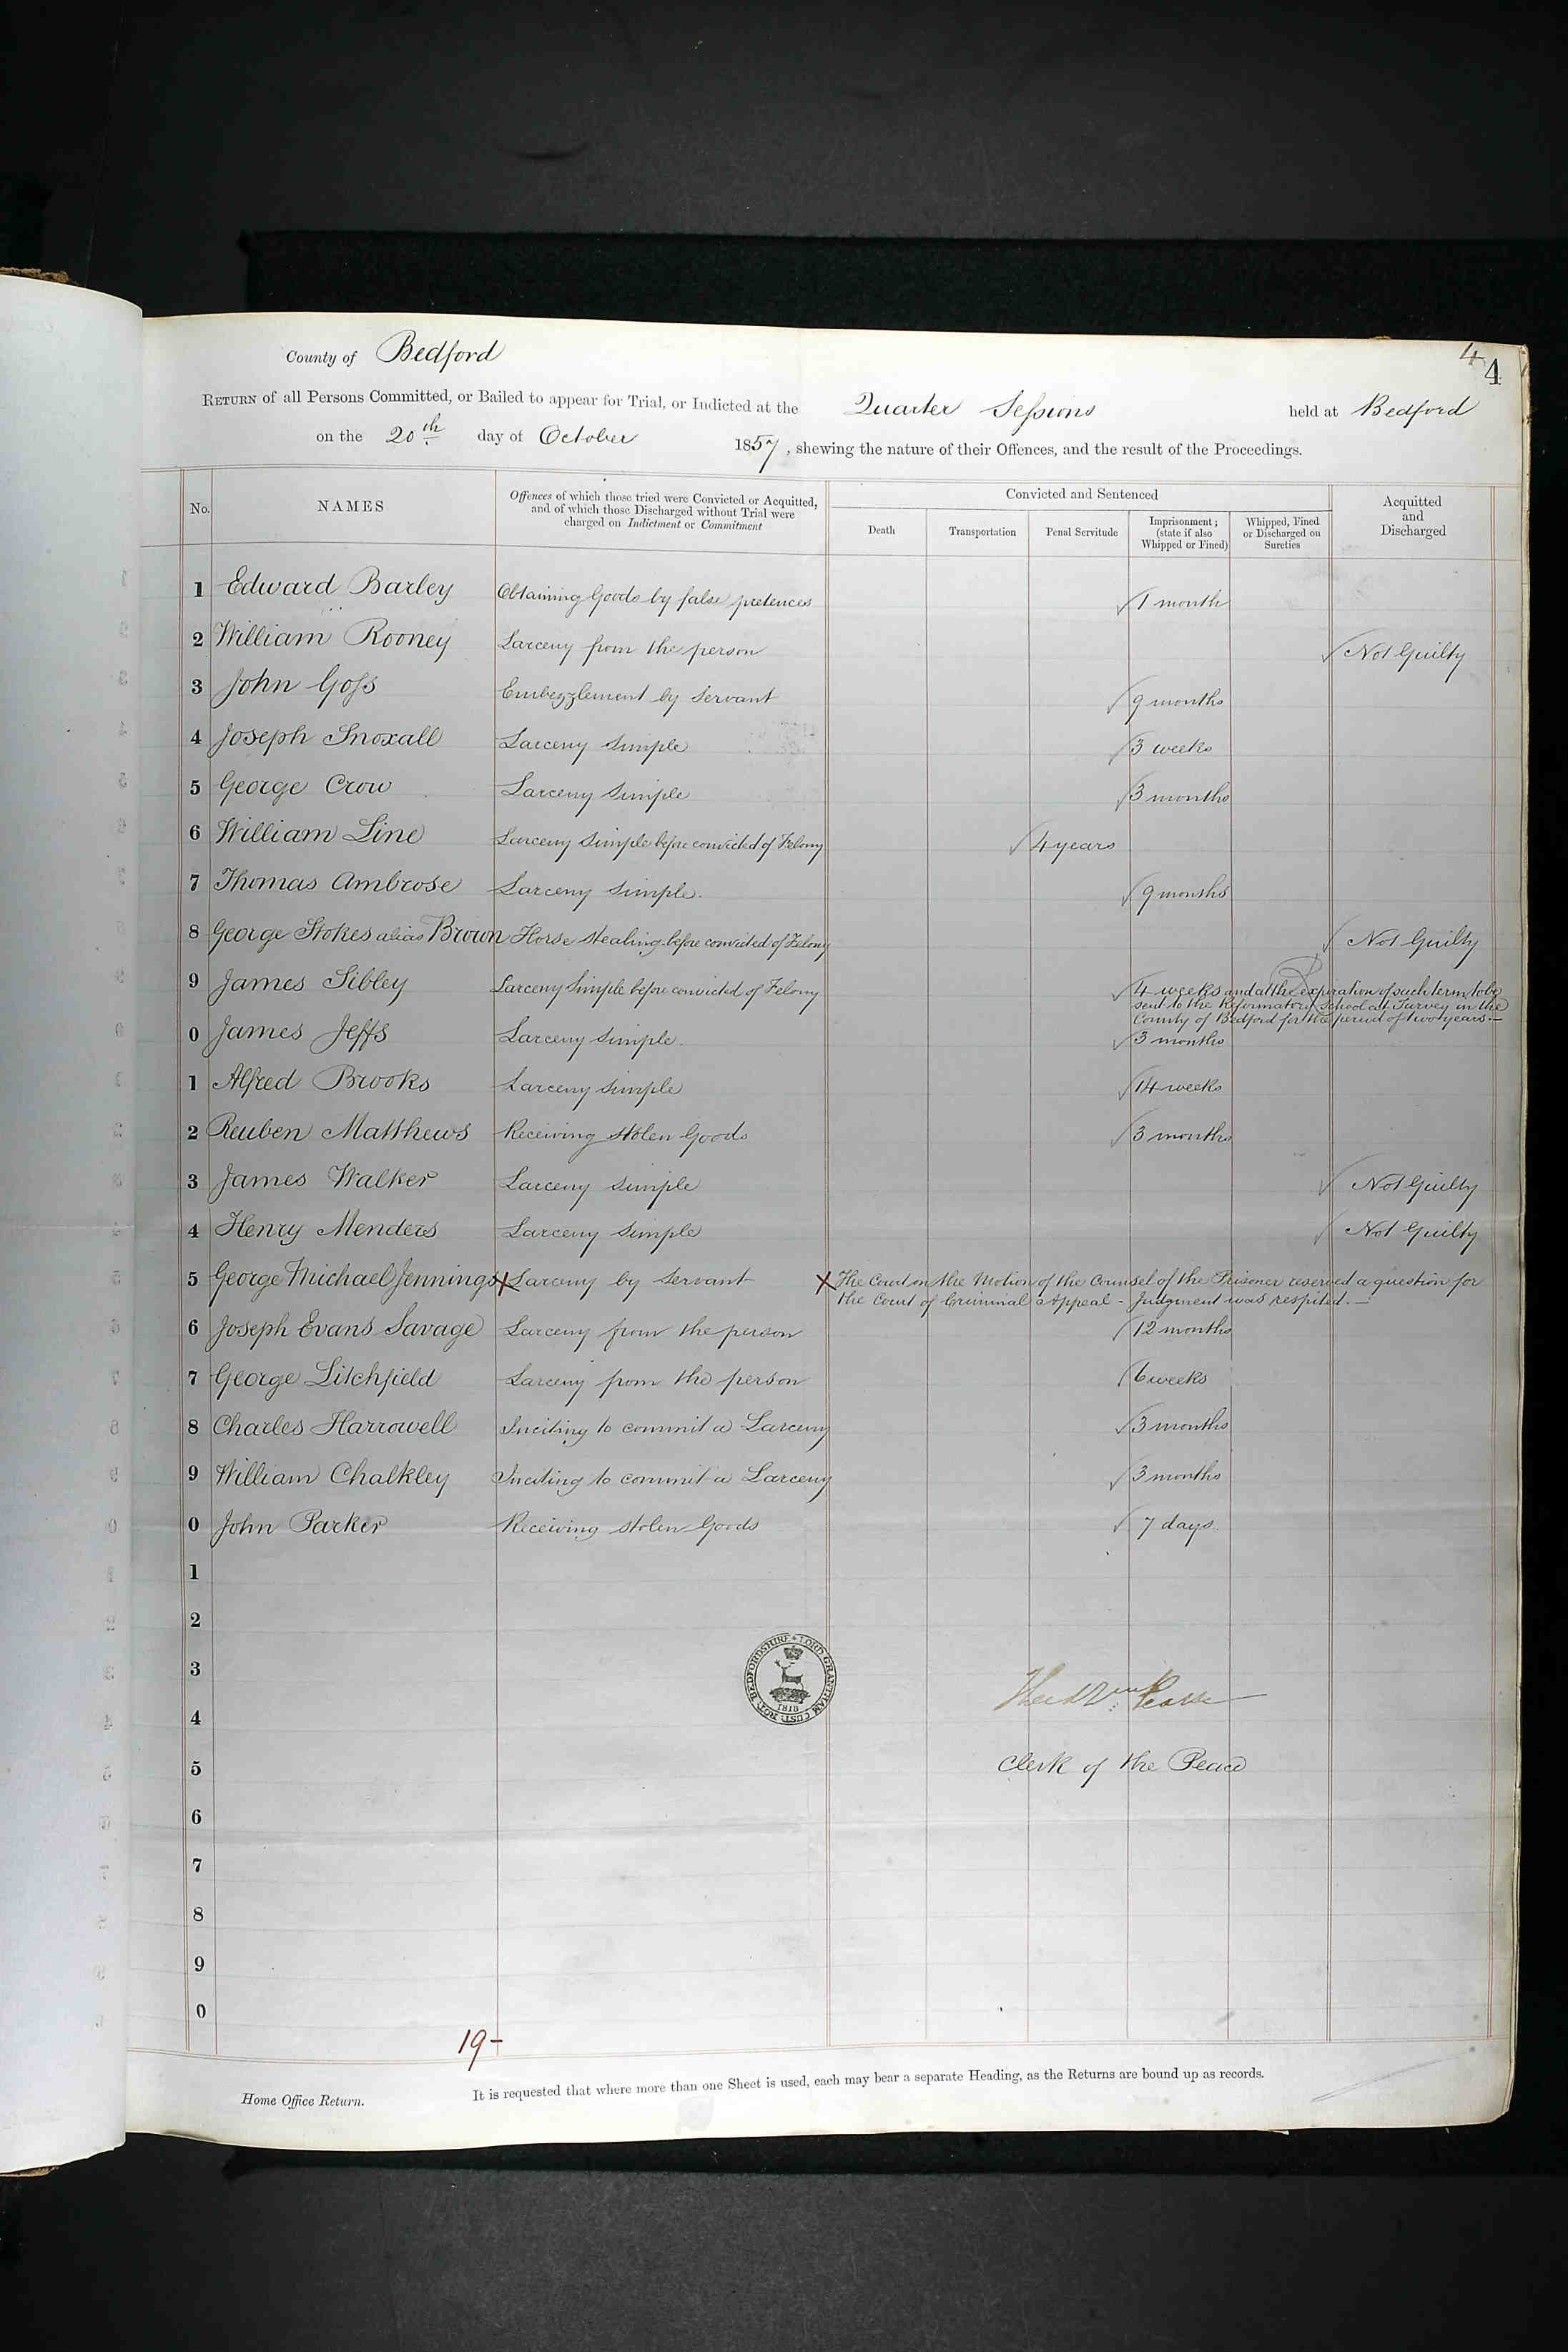 4
4
County of Bedford
RETURN of all Persons Committed, or Bailed to appear for Trial, or Indicted at the Quarter Sessions held at Bedford
on the 20th day of October 1857, shewing the nature of their Offences, and the result of the Proceedings.
No. NAMES Offences of which those tried were Convicted or Acquitted, and of which those Discharged without Trial were charged on Indictment or Commitment Convicted and Sentenced Acquitted and Discharged
Death Transportation Penal Servitude Imprisonment; (state if also Whipped or Fined) Whipped, Fined or Discharged on Sureties
1 Edward Barley Obtaining Goods by false pretences 1 month
2 William Rooney Larceny from the person Not Guilty
3 John Goss Embezzlement by Servant 9 months
4 Joseph Snoxall Larceny Simple 3 weeks
5 George Crow Larceny Simple 3 months
6 William Line Larceny Simple before convicted of Felony 4 years
7 Thomas Ambrose Larceny Simple. 9 months
8 George Stokes alias Brown Horse stealing before convicted of Felony Not Guilty
9 James Sibley Larceny Simple before convicted of Felony 4 weeks and at the expiration of such term to be
sent to the Reformatory School at Turvey in the
County of Bedford for the period of two years.—
0 James Jeffs Larceny Simple. 3 months
1 Alfred Brooks Larceny Simple 14 weeks
2 Reuben Matthews Receiving Stolen Goods 3 months
3 James Walker Larceny Simple Not Guilty
4 Henry Menders Larceny Simple Not Guilty
5 George Michael Jennings X Larceny by Servant X The Court on the Motion of the Counsel of the Prisoner reserved a question for
the Court of Criminal Appeal - Judgment was respited. —
6 Joseph Evans Savage Larceny from the person 12 months
7 George Litchfield Larceny from the person 6 weeks
8 Charles Harrowell Inciting to commit a Larceny 3 months
9 William Chalkley Inciting to commit a Larceny 3 months
0 John Parker Receiving Stolen Goods 7 days.
1
2
3
BEDFORDSHIRE LORD GRANTHAM CUST: ROT: 1818
4
5 Clerk of the Peace
6
7
8
9
0
19-
Home Office Return. It is requested that where more than one Sheet is used, each may bear a separate Heading, as the Returns are bound up as records.